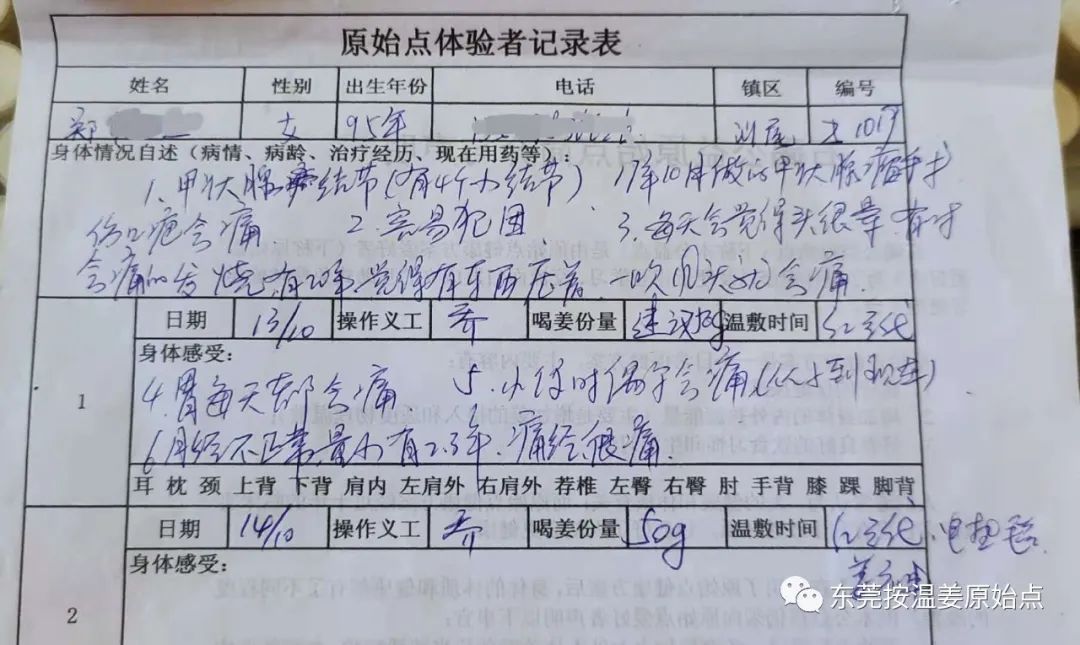 原始点体验者记录表
姓名 性别 出生年份 电话 镇区 编号
郑 女 95年 1019
身体情况自述（病情、病龄、治疗经历、现在用药等）：
1.甲状腺结节(有4个小结节) 19年10月做的甲状腺瘤手术
伤口疤会痛 2.容易犯困 3.每天会觉得头很晕.有时
会痛的发烧.有时候觉得有东西压着.一吹风大就会痛.
日期 13/10 操作义工 乔 喝姜份量 建议 温敷时间
1
身体感受：
4.胃每天都会痛 5.小便时偶尔会痛(从小到现在)
6.月经不正常.量少有2.3年.痛经很痛.
耳 枕 颈 上背 下背 肩内 左肩外 右肩外 荐椎 左臀 右臀 肘 手背 膝 踝 脚背
日期 14/10 操作义工 乔 喝姜份量 50g 温敷时间
2
身体感受：
东莞按温姜原始点